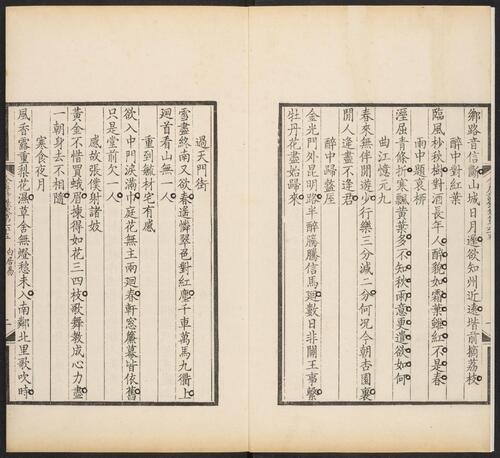 鄉路音信斷山城日月遲欲知州近遠堦前摘荔枝
醉中對紅葉
臨風杪秋樹對酒長年人醉貌如霜葉雖紅不是春
雨中題衰柳
溼屈青條折寒飄黃葉多不知秋雨意更遣欲如何
曲江憶元九
春來無伴閒遊少行樂三分減二分何況今朝杏園裏
閒人逢盡不逢君
醉中歸盩厔
金光門外昆明路半醉騰騰信馬迴數日非關王事繫
牡丹花盡始歸來
過天門街
雪盡終南又欲春遙憐翠色對紅塵千車萬馬九衢上
迴首看山無一人
重到毓材宅有感
欲入中門淚滿巾庭花無主兩迴春軒窓簾幕皆依舊
只是堂前欠一人
感故張僕射諸妓
黃金不惜買蛾眉揀得如花三四枝歌舞教成心力盡
一朝身去不相隨
寒食夜月
風香露重梨花濕草舍無燈愁未入南鄰北里歌吹時
白居易